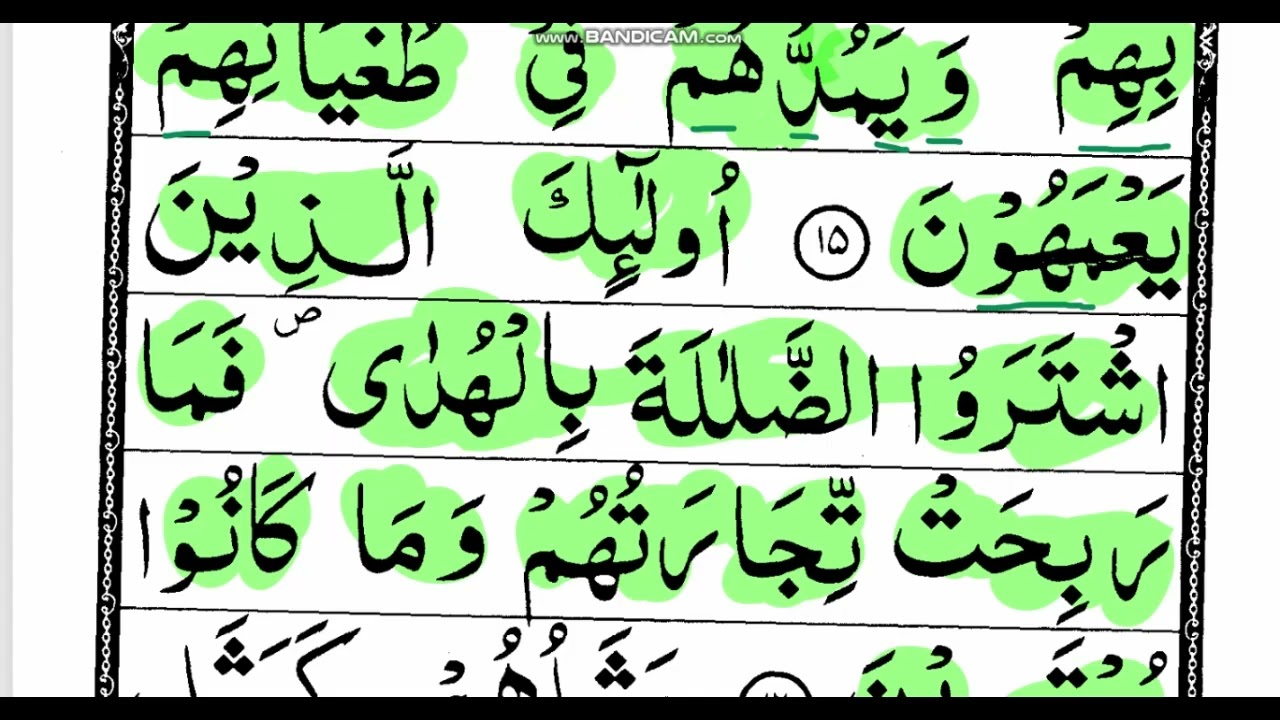 www.BANDICAM.com
بِهِمْ وَيَمُدُّهُمْ فِيْ طُغْيَانِهِمْ
يَعْمَهُوْنَ ۝۱۵ اُولٰٓئِكَ الَّذِيْنَ
اشْتَرَوُا الضَّلٰلَةَ بِالْهُدٰى ۪ فَمَا
رَبِحَتْ تِّجَارَتُهُمْ وَمَا كَانُوْا